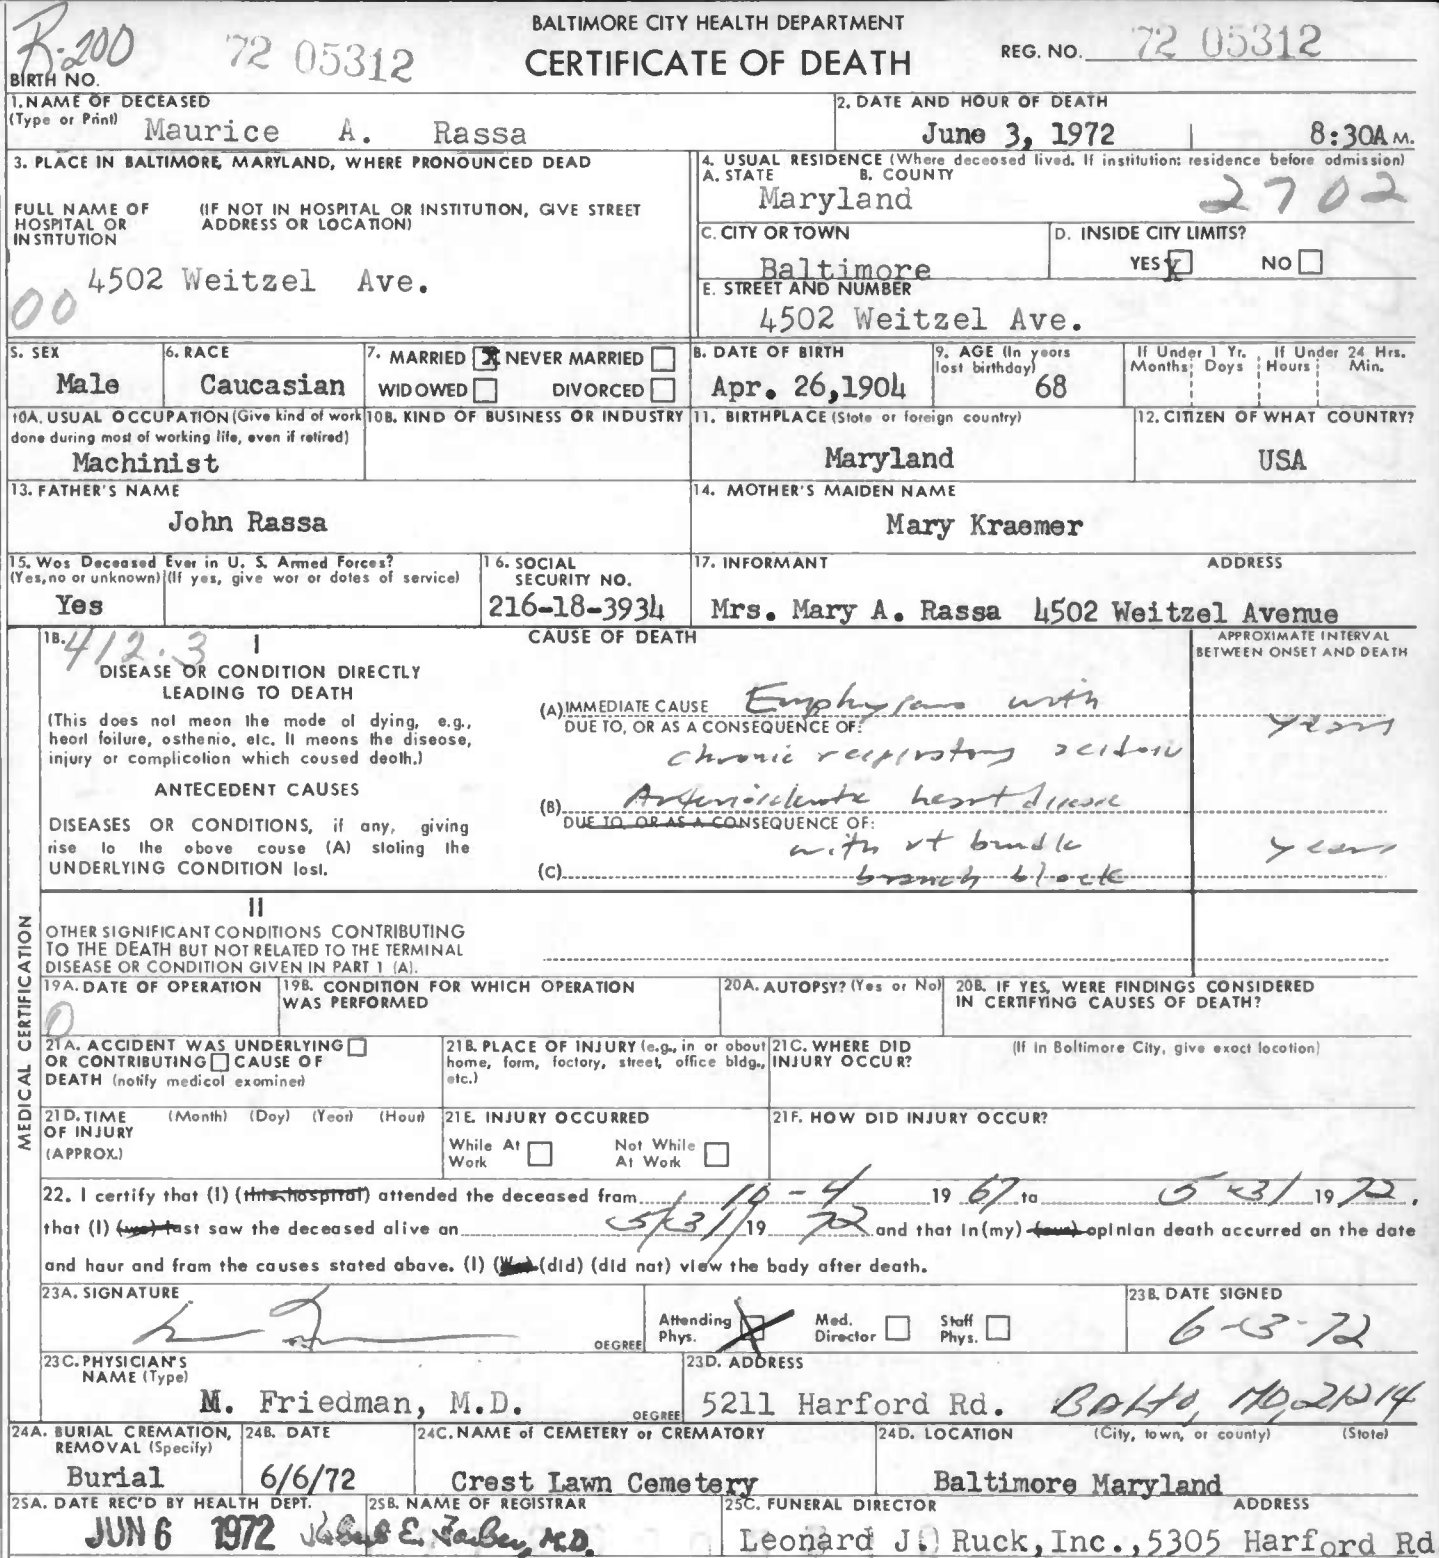 R-200
72 05312
BIRTH NO.
BALTIMORE CITY HEALTH DEPARTMENT
CERTIFICATE OF DEATH
REG. NO. 72 05312
1. NAME OF DECEASED
(Type or Print) Maurice A. Rassa
2. DATE AND HOUR OF DEATH
June 3, 1972 | 8:30A M.
3. PLACE IN BALTIMORE, MARYLAND, WHERE PRONOUNCED DEAD
FULL NAME OF HOSPITAL OR INSTITUTION
(IF NOT IN HOSPITAL OR INSTITUTION, GIVE STREET ADDRESS OR LOCATION)
4502 Weitzel Ave.
00
4. USUAL RESIDENCE (Where deceased lived. If institution: residence before admission)
A. STATE B. COUNTY
Maryland 2702
C. CITY OR TOWN
Baltimore
D. INSIDE CITY LIMITS?
YES X NO
E. STREET AND NUMBER
4502 Weitzel Ave.
5. SEX
Male
6. RACE
Caucasian
7. MARRIED X NEVER MARRIED
WIDOWED DIVORCED
8. DATE OF BIRTH
Apr. 26,1904
9. AGE (In years last birthday)
68
If Under 1 Yr. If Under 24 Hrs.
Months Days Hours Min.
10A. USUAL OCCUPATION (Give kind of work
done during most of working life, even if retired)
Machinist
10B. KIND OF BUSINESS OR INDUSTRY
11. BIRTHPLACE (State or foreign country)
Maryland
12. CITIZEN OF WHAT COUNTRY?
USA
13. FATHER'S NAME
John Rassa
14. MOTHER'S MAIDEN NAME
Mary Kraemer
15. Was Deceased Ever in U. S. Armed Forces?
(Yes, no or unknown) (If yes, give war or dates of service)
Yes
16. SOCIAL SECURITY NO.
216-18-3934
17. INFORMANT ADDRESS
Mrs. Mary A. Rassa 4502 Weitzel Avenue
MEDICAL CERTIFICATION
18. 412.3
I
DISEASE OR CONDITION DIRECTLY
LEADING TO DEATH
(This does not mean the mode of dying, e.g.,
heart failure, asthenia, etc. It means the disease,
injury or complication which caused death.)
ANTECEDENT CAUSES
DISEASES OR CONDITIONS, if any, giving
rise to the above cause (A) stating the
UNDERLYING CONDITION last.
CAUSE OF DEATH
APPROXIMATE INTERVAL
BETWEEN ONSET AND DEATH
(A) IMMEDIATE CAUSE Emphysema with
DUE TO, OR AS A CONSEQUENCE OF:
years
chronic respiratory acidosis
(B) Arteriosclerotic heart disease
DUE TO, OR AS A CONSEQUENCE OF:
with rt bundle years
(C) branch block
II
OTHER SIGNIFICANT CONDITIONS CONTRIBUTING
TO THE DEATH BUT NOT RELATED TO THE TERMINAL
DISEASE OR CONDITION GIVEN IN PART 1 (A).
19A. DATE OF OPERATION
0
19B. CONDITION FOR WHICH OPERATION
WAS PERFORMED
20A. AUTOPSY? (Yes or No)
20B. IF YES, WERE FINDINGS CONSIDERED
IN CERTIFYING CAUSES OF DEATH?
21A. ACCIDENT WAS UNDERLYING
OR CONTRIBUTING CAUSE OF
DEATH (notify medical examiner)
21B. PLACE OF INJURY (e.g., in or about
home, farm, factory, street, office bldg.,
etc.)
21C. WHERE DID
INJURY OCCUR?
(If In Baltimore City, give exact location)
21D. TIME (Month) (Day) (Year) (Hour)
OF INJURY
(APPROX.)
21E. INJURY OCCURRED
While At Work Not While At Work
21F. HOW DID INJURY OCCUR?
22. I certify that (I) (this hospital) attended the deceased from 10-4 19 67 to 5-31 19 72,
that (I) (we) last saw the deceased alive on 5/31/ 19 72 and that in (my) (our) opinion death occurred on the date
and hour and from the causes stated above. (I) (did) (did not) view the body after death.
23A. SIGNATURE
DEGREE
Attending Phys. X Med. Director Staff Phys.
23B. DATE SIGNED
6-3-72
23C. PHYSICIAN'S
NAME (Type)
M. Friedman, M.D. DEGREE
23D. ADDRESS
5211 Harford Rd. Balto, MD, 21214
24A. BURIAL CREMATION,
REMOVAL (Specify)
Burial
24B. DATE
6/6/72
24C. NAME of CEMETERY or CREMATORY
Crest Lawn Cemetery
24D. LOCATION (City, town, or county) (State)
Baltimore Maryland
25A. DATE REC'D BY HEALTH DEPT.
JUN 6 1972
25B. NAME OF REGISTRAR
Robert E. Farber, M.D.
25C. FUNERAL DIRECTOR ADDRESS
Leonard J. Ruck, Inc., 5305 Harford Rd